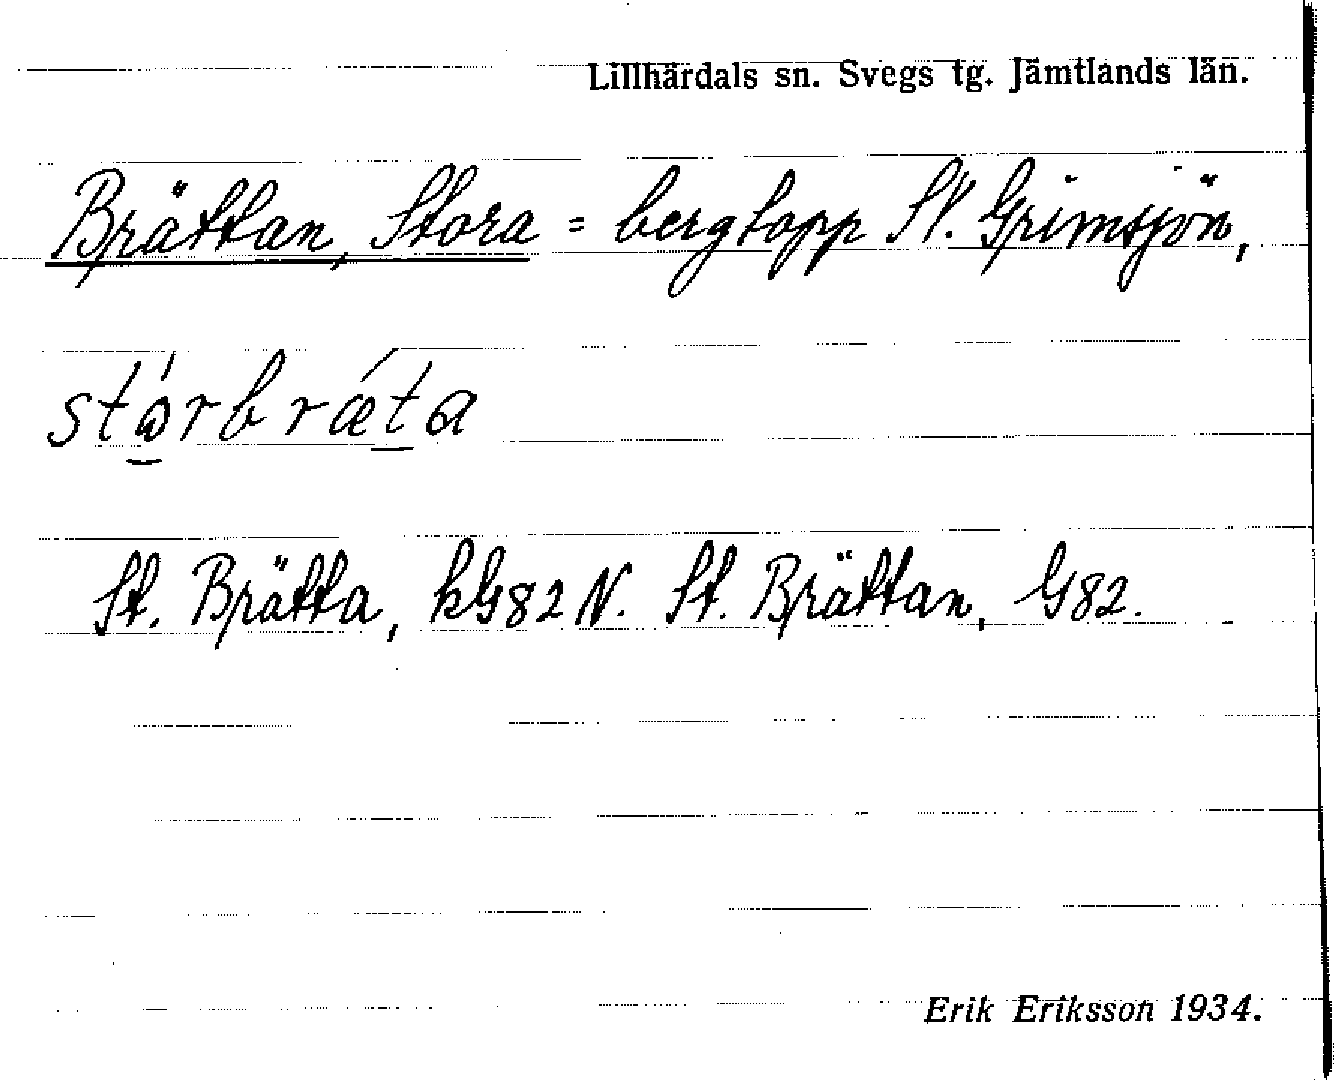 Lillhärdals sn. Svegs tg. Jämtlands län.
Brättan, Stora = bergtopp SV. Grimsjön,
stårbræta
St. Brätta, kG82 N. St. Brättan, G82.
Erik Eriksson 1934.